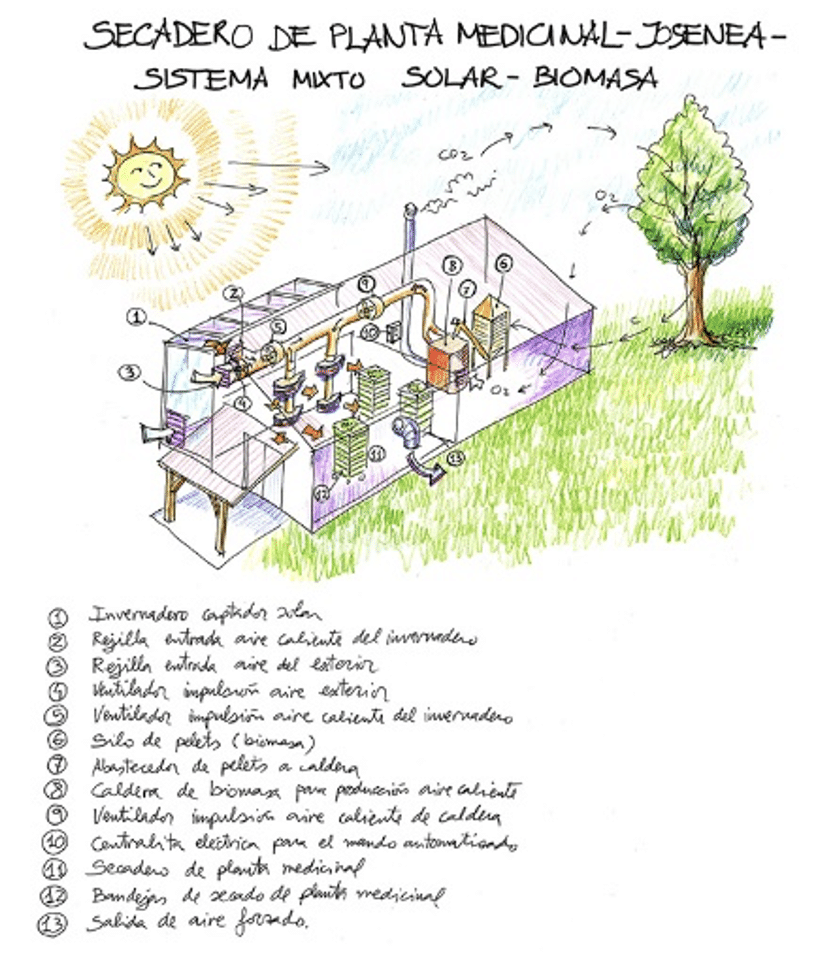 SECADERO DE PLANTA MEDICINAL-JOSENEA-
SISTEMA MIXTO SOLAR-BIOMASA
CO2
O2
1
2
3
4
5
9
10
8
7
6
O2
11
12
13
1 Invernadero captador solar
2 Rejilla entrada aire caliente del invernadero
3 Rejilla entrada aire del exterior
4 Ventilador impulsión aire exterior
5 Ventilador impulsión aire caliente del invernadero
6 Silo de pelets (biomasa)
7 Abastecedor de pelets a caldera
8 Caldera de biomasa para producción aire caliente
9 Ventilador impulsion aire caliente de caldera
10 Centralita eléctrica para el mando automatizado
11 Secadero de planta medicinal
12 Bandejas de secado de planta medicinal
13 Salida de aire forzado.